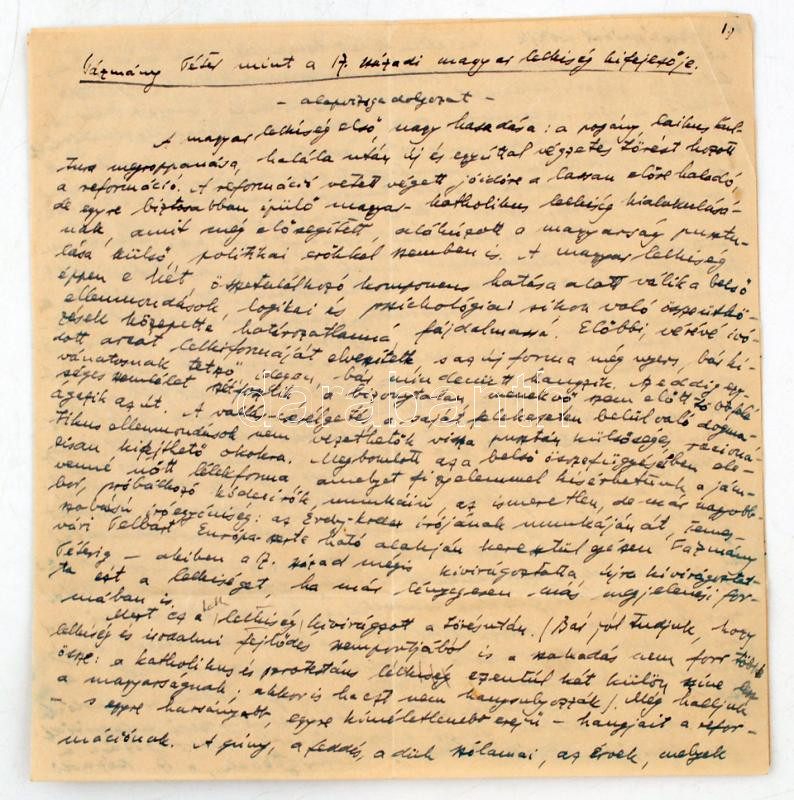 19
Pázmány Péter mint a 17. századi magyar lelkiség kifejezője.
- alapvizsga dolgozat -
A magyar lelkiség első nagy hasadása: a pogány, laikus kul-
tura megroppanása, halála után új és egyúttal végzetes törést hozott
a reformáció. A reformáció vetett végett jóidőre a lassan előre haladó,
de egyre biztosabban épülő magyar-katholikus lelkiség kialakulásá-
nak, amit még elősegített, aláhúzott a magyarság puszt-
lása külső, politikai erőkkel szemben is. A magyar lelkiség
éppen e két, összetalálkozó komponens hatása alatt válik a belső
ellenmondások, logikai és pszichológiai síkon való összeütkö-
zések közepette határozatlanná, fájdalmassá. Előbbi, vérévé ivó-
dott arcát lelkiformáját elvesztette, s az új forma még nyers, bár kí-
vánatosnak tetsző, idegen, bár mindenütt hangzik. Az eddig egy-
séges szemlélet szétfoszlik, a bizonytalan menekvő szem előtt többfelé
ágazik az út. A vallás-cselgető, a saját kereteken belül való dogma-
tikus ellenmondások nem vezethetők vissza pusztán külsőséges, racioná-
lisan kifejthető okokra. Megbomlott az a belső összefüggéseiben ele-
venné nőtt lélekforma amelyet figyelemmel kísérhetünk a jám-
bor, próbálkozó kódexírók munkáin, az ismeretlen, de már nagyobb-
szabású íróegyéniség: az Érdy-kodex írójának munkáján át, Temes-
vári Pelbárt Európa-szerte ható alakján keresztül egészen Pázmány
Péterig - akiben a 17. század mégis kivirágoztatta, újra kivirágoztat-
ta ezt a lelkiséget, ha már lényegesen más megjelenési for-
mában is.
Mert ez a lelkiség kivirágzott a törés után. (Bár jól tudjuk, hogy
lelkiség és irodalmi fejlődés szempontjából is a szakadás nem forr többé
össze: a katholikus és protestáns lelkiség ezentúl két külön színe lesz
a magyarságnak; akkor is ha ezt nem hangsulyozzák). Még halljuk
- s egyre harsányabb, egyre kíméletlenebb erejű - hangjait a refor-
mációnak. A gúny, a feddés, a düh szólamai, az érvek, melyek
darabanth